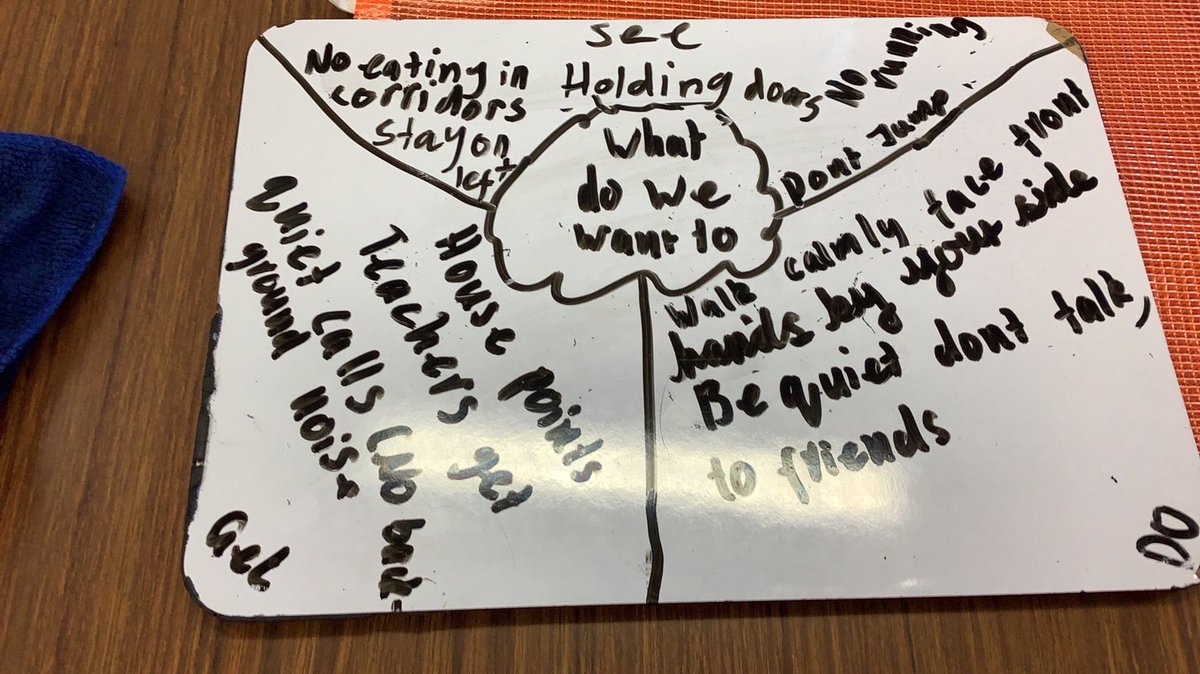 See
No eating in
corridors
Stay on
left
Holding doors
No
running
Dont Jump
What
do we
want to
House points
Teachers get
quiet calls (no back-
ground noise
Get
Walk calmly face front
hands by your side
Be quiet dont talk,
to friends
DO